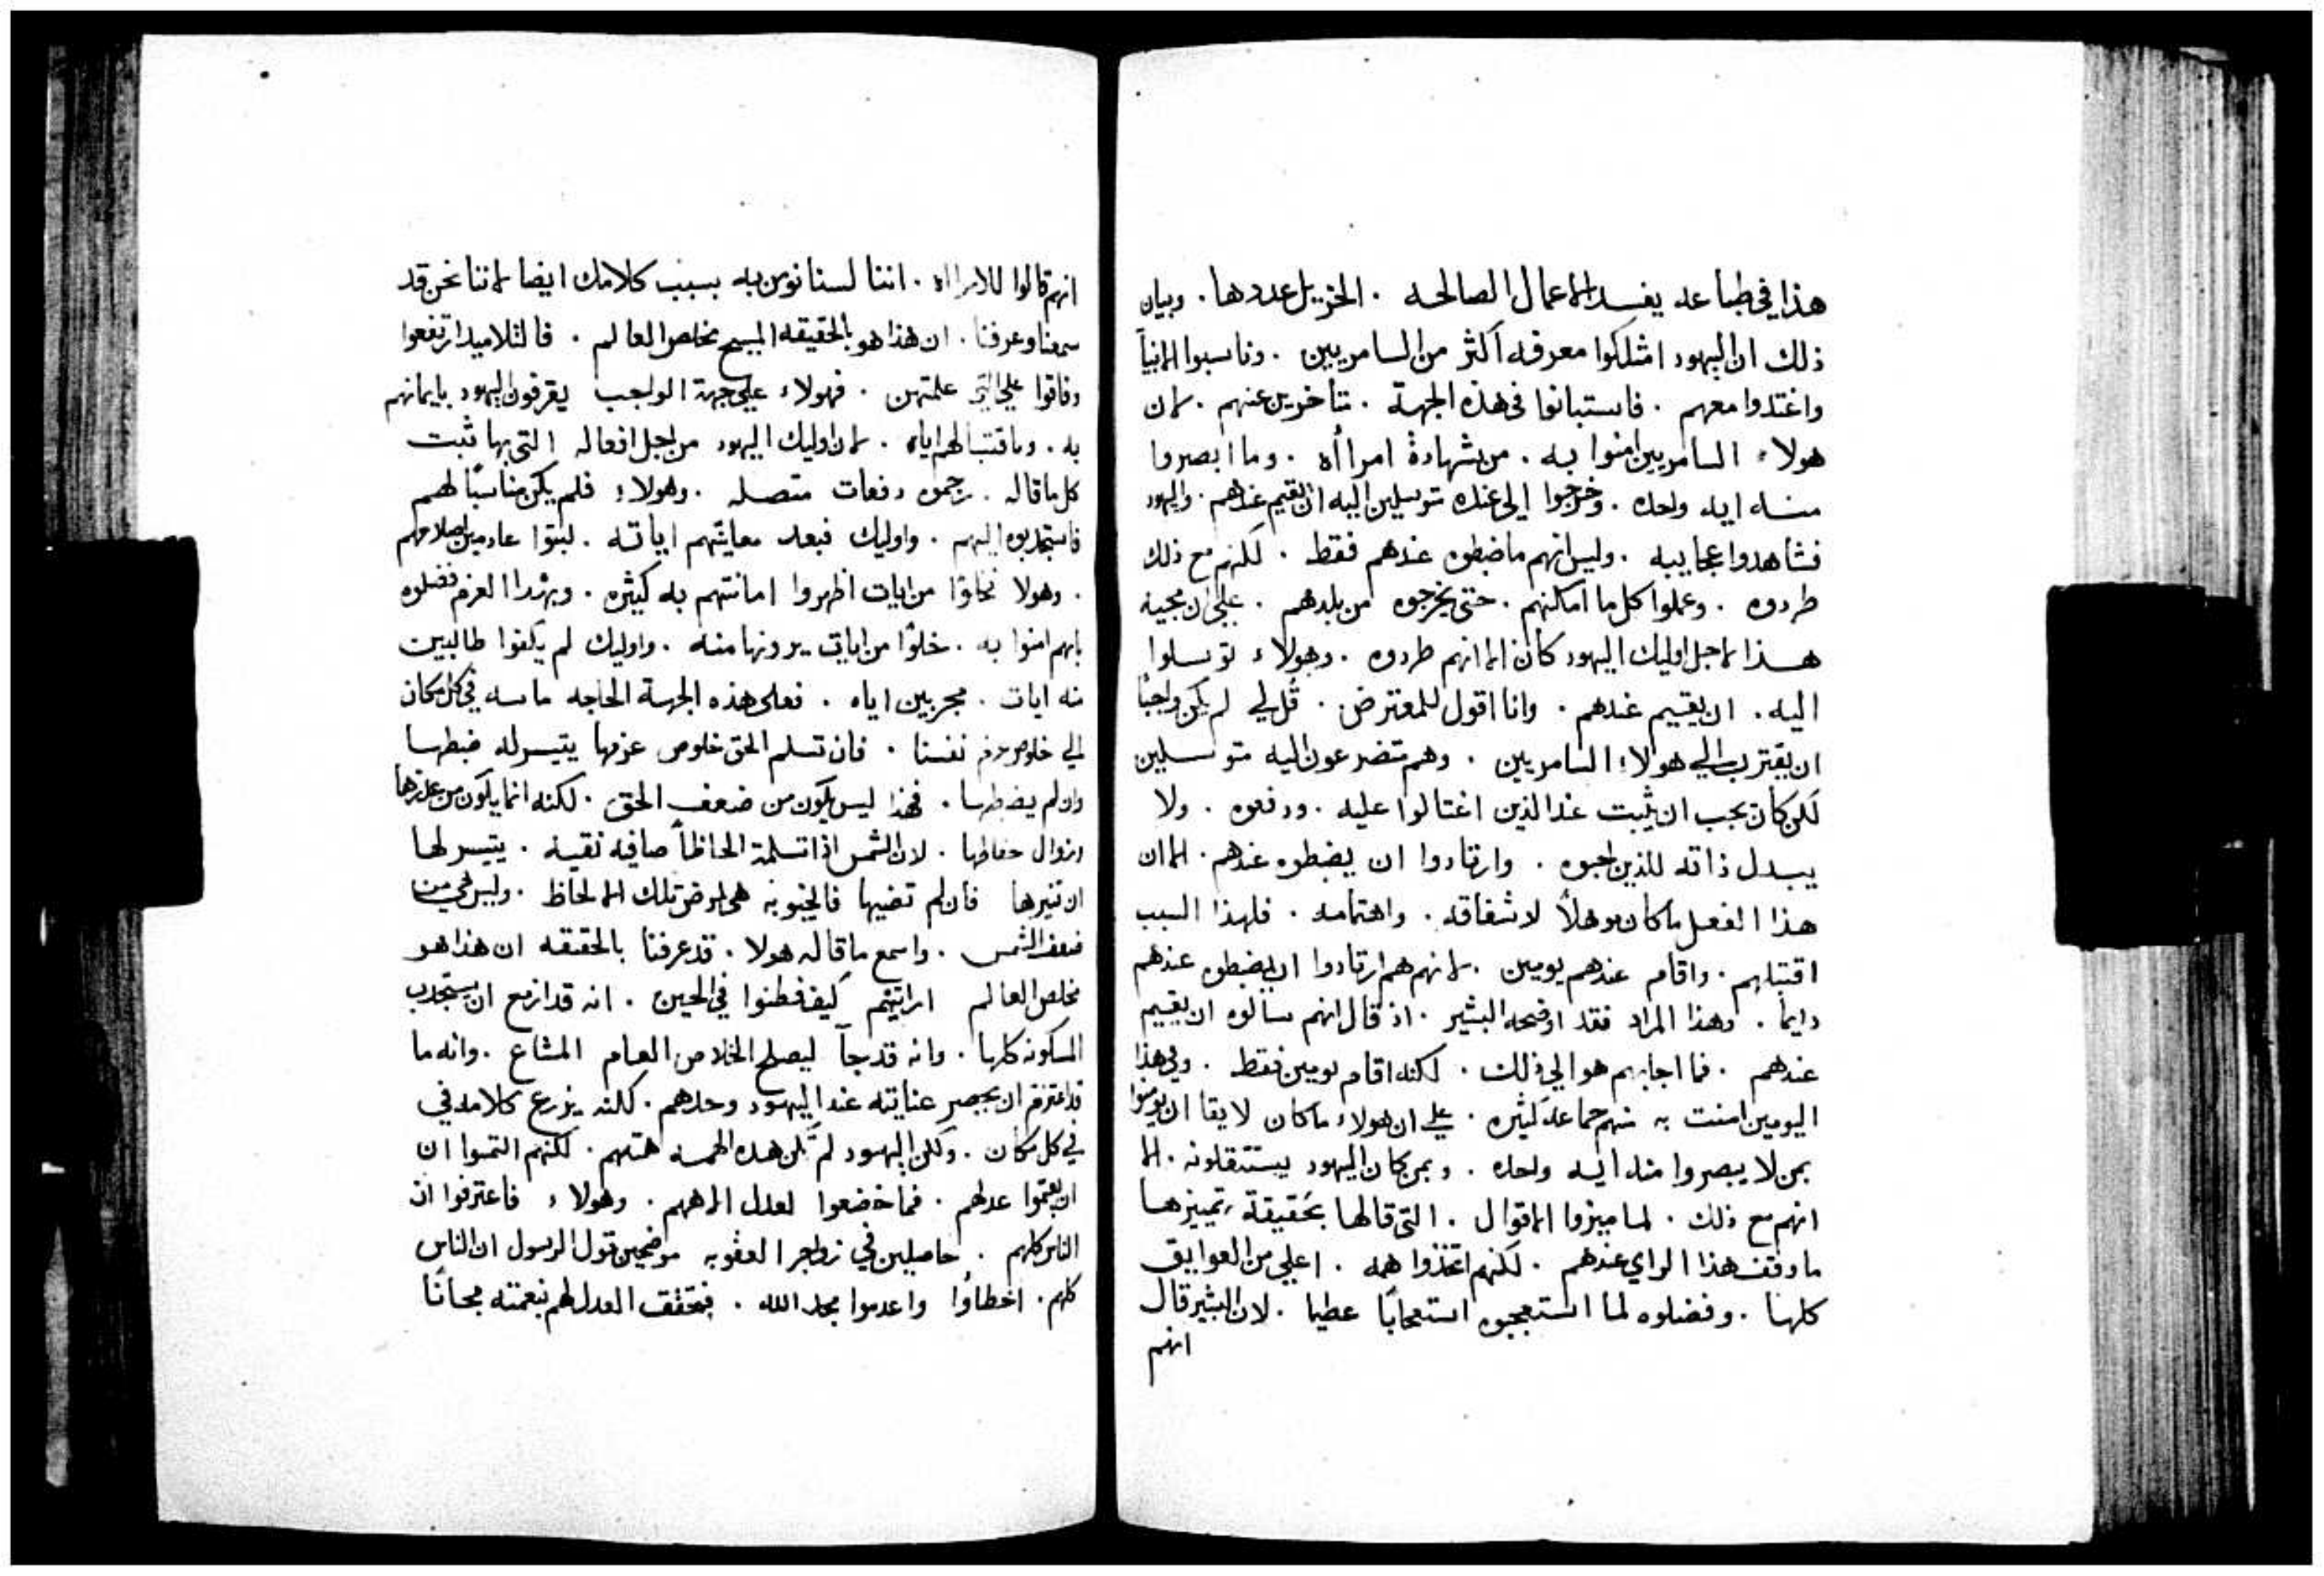 هذا في طباعه يفسد الاعمال الصالحه . الجزيل عددها . وبيان
ذلك ان اليهود امتلكوا معرفه اكثر من السامريين . وناسبوا الانبيآ
واغتدوا معهم . فاستبانوا في هذه الجهة . متاخرين عنهم . لان
هولاء السامريين امنوا به . من شهادة امرأه . وما ابصروا
منه ايه واحده . وخرجوا الي عنده متوسلين اليه ان يقيم عندهم . واليهود
فشاهدوا عجايبه . وليس انهم ما ضبطوه عندهم فقط . لكنهم مع ذلك
طردوه . وعملوا كل ما امكنهم . حتى يخرجوه من بلدهم . علي ان مجيه
هذا لاجل اوليك اليهود كان الا انهم طردوه . وهولاء توسلوا
اليه . ان يقيم عندهم . وانا اقول للمعترض . قل لي لم يكن واجبًا
ان يقترب الي هولاء السامريين . وهم متضرعون اليه متوسلين
لكن كان يجب ان يثبت عند الذين اغتالوا عليه . ودفعوه . ولا
يبدل ذاته للذين احبوه . وارتادوا ان يضبطوه عندهم . الا ان
هذا الفعل ما كان موهلاً لاشفاقه . واهتمامه . فلهذا السبب
اقتبلهم . واقام عندهم يومين . لانهم هم ارتادوا ان يضبطوه عندهم
دايمًا . وهذا المراد فقد اوضحه البشير . اذ قال انهم سالوه ان يقيم
عندهم . فما اجابهم هو الي ذلك . لكنه اقام يومين فقط . وفي هذا
اليومين امنت به منهم جماعه كثيره . علي ان هولاء ما كان لايقا ان يومنوا
بمن لا يبصروا منه ايه واحده . وبمن كان اليهود يستثقلونه . الا
انهم مع ذلك . لما ميزوا الاقوال . التي قالها بحقيقة تمييزها
ما وقف هذا الراي عندهم . لكنهم اتخذوا همه . اعلي من العوايق
كلها . وفضلوه لما استعجبوه استعجابًا عظيما . لان البشير قال
انهم
انهم قالوا للامرااه . اننا لسنا نومن به بسبب كلامك ايضا لاننا نحن قد
سمعنا وعرفنا . ان هذا هو بالحقيقه المسيح مخلص العالم . فالتلاميد ارتفعوا
وفاقوا علي التي علمتهن . فهولاء علي جهة الواجب يقرفون اليهود بايمانهم
به . وباقتبالهم اياه . لان اوليك اليهود من اجل افعاله التي بها ثبت
كل ما قاله . رجموه دفعات متصله . وهولاء فلم يكن مناسبًا لهم
فاستجدبوه اليهم . واوليك فبعد معاينتهم اياته . لبتوا عادمين اصلاحهم
. وهولا نجاوا من ايات اظهروا امانتهم به كثيره . وبهذا العزم فضلوه
بانهم امنوا به . خلوًا من ايات يرونها منه . واوليك لم يكفوا طالبين
منه ايات . مجربين اياه . فعلي هذه الجهة الحاجه ماسه في كل مكان
الي خلوص عزم نفسنا . فان تسلم الحق خلوص عزمها يتيسر له ضبطها
وان لم يضبطها . فهذا ليس يكون من ضعف الحق . لكنه انما يكون من عدمها
لان الشمس اذا تسلمت الحاظاً صافيه نقيه . يتيسر لها
ان تنيرها فان لم تضيها فالخيبوبه هي لمرض تلك الالحاظ . وليس هي من
ضعف الشمس . واسمع ما قاله هولا . قد عرفنا بالحقيقه ان هذا هو
مخلص العالم ارايتم كيف فطنوا في الحين . انه قد ازمع ان يستجدب
المسكونه كلها . وانه قد جآ ليصلح الخلاص العام المشاع . وانه ما
قد اعتزم ان يحصر عنايته عند اليهود وحدهم . لكنه يزرع كلامه في
في كل مكان . ولكن اليهود لم تكن هذه الهمه همتهم . لكنهم التمسوا ان
ان يقيموا عدلهم . فما خضعوا لعدل الاههم . وهولاء فاعترفوا ان
الناس كلهم . حاصلين في زواجر العقوبه موضحين قول الرسول ان الناس
كلهم . اخطاوا واعدموا مجد الله . فيتحقق العدل لهم بنعمته مجانًا